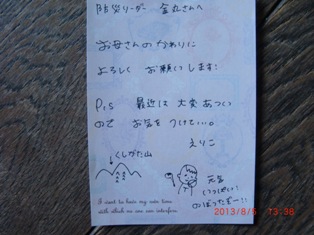 防災リーダー 金丸さんへ
お母さんのかわりに
よろしく お願いします!
P.S 最近は 大変あつい
ので お気を つけて…。
えりこ
くしがた山
元気
いっぱい!
のぼったぞー!!
I want to have my own time
with which no one can interfere.
2013/8/6 13:38